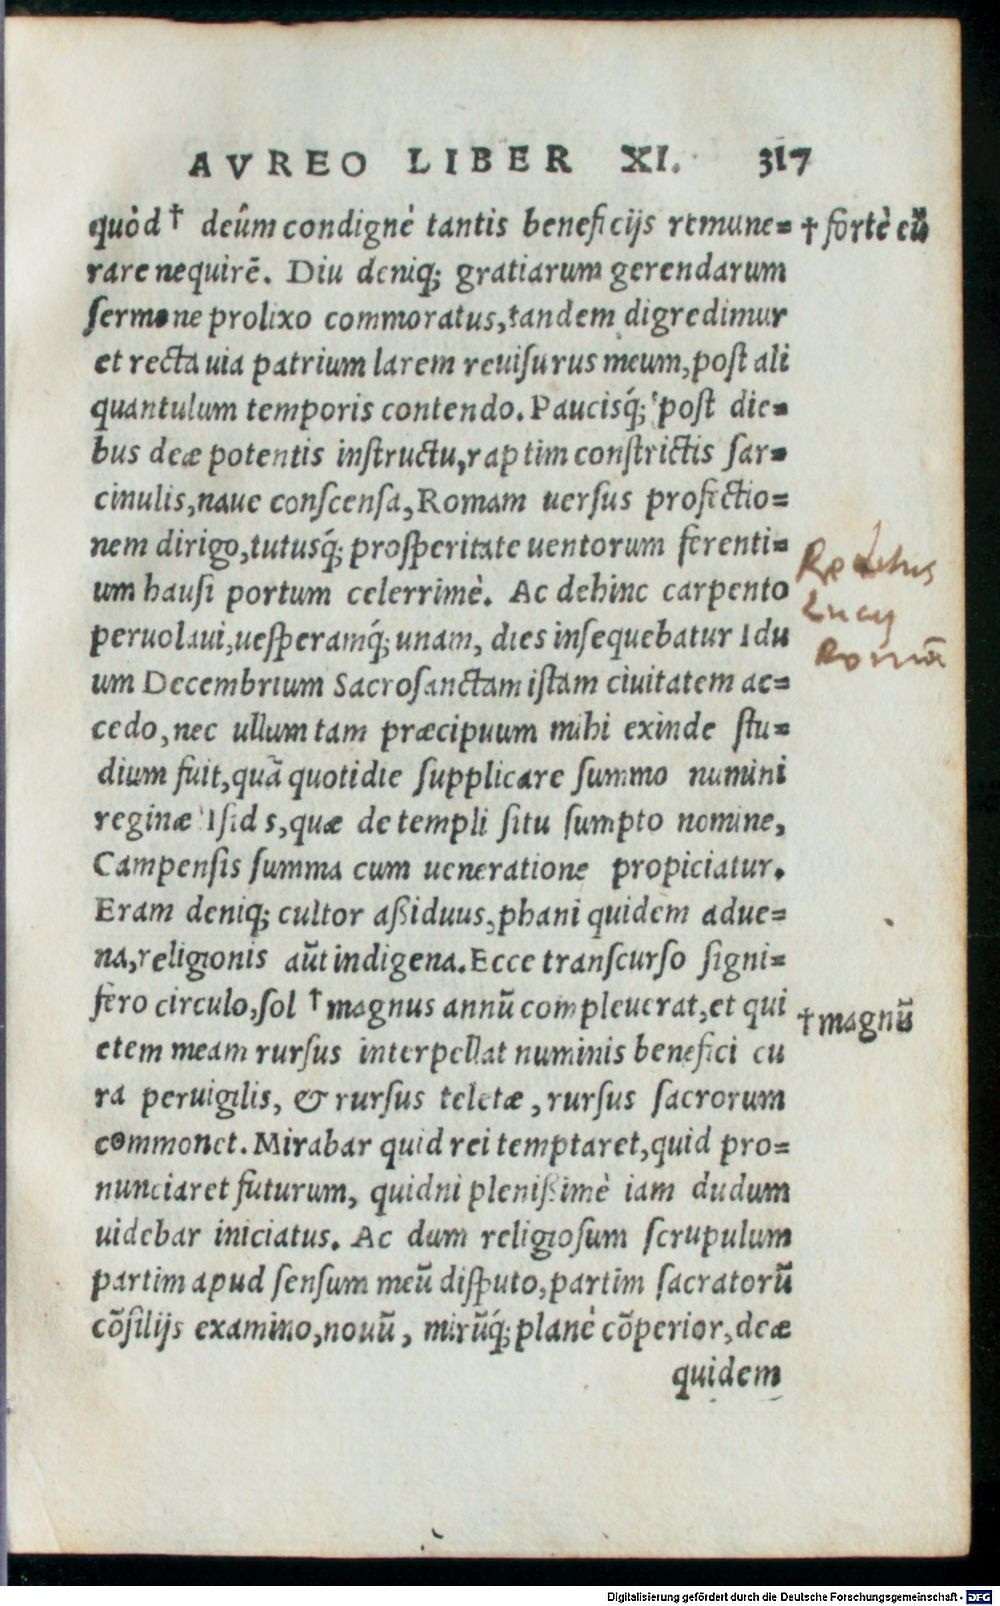 AVREO LIBER XI. 317
quòd † deûm condignè tantis beneficijs remune= † fortè eũ
rare nequirẽ. Diu deniq; gratiarum gerendarum
sermone prolixo commoratus, tandem digredimur
et recta uia patrium larem reuisurus meum, post ali
quantulum temporis contendo. Paucisq́; post die=
bus deæ potentis instructu, raptim constrictis sar=
cinulis, naue conscensa, Romam uersus profectio=
nem dirigo, tutusq́; prosperitate uentorum ferenti=
um hausi portum celerrimè. Ac dehinc carpento
peruolaui, uesperamq́; unam, dies insequebatur Idu
um Decembrium Sacrosanctam istam ciuitatem ac=
cedo, nec ullum tam præcipuum mihi exinde stu=
dium fuit, quã quotidie supplicare summo numini
reginæ Isid s, quæ de templi situ sumpto nomine,
Campensis summa cum ueneratione propiciatur.
Eram deniq; cultor aßiduus, phani quidem adue=
na, religionis aũt indigena. Ecce transcurso signi=
fero circulo, sol † magnus annũ compleuerat, et qui † magnũ
etem meam rursus interpellat numinis benefici cu
ra peruigilis, & rursus teletæ, rursus sacrorum
commonet. Mirabar quid rei temptaret, quid pro=
nunciaret futurum, quidni plenißimè iam dudum
uidebar iniciatus. Ac dum religiosum scrupulum
partim apud sensum meũ disputo, partim sacratorũ
cõsilijs examino, nouũ, mirũq́; planè cõperior, deæ
quidem
Reditus
Lucij
Romã
Digitalisierung gefördert durch die Deutsche Forschungsgemeinschaft - DFG